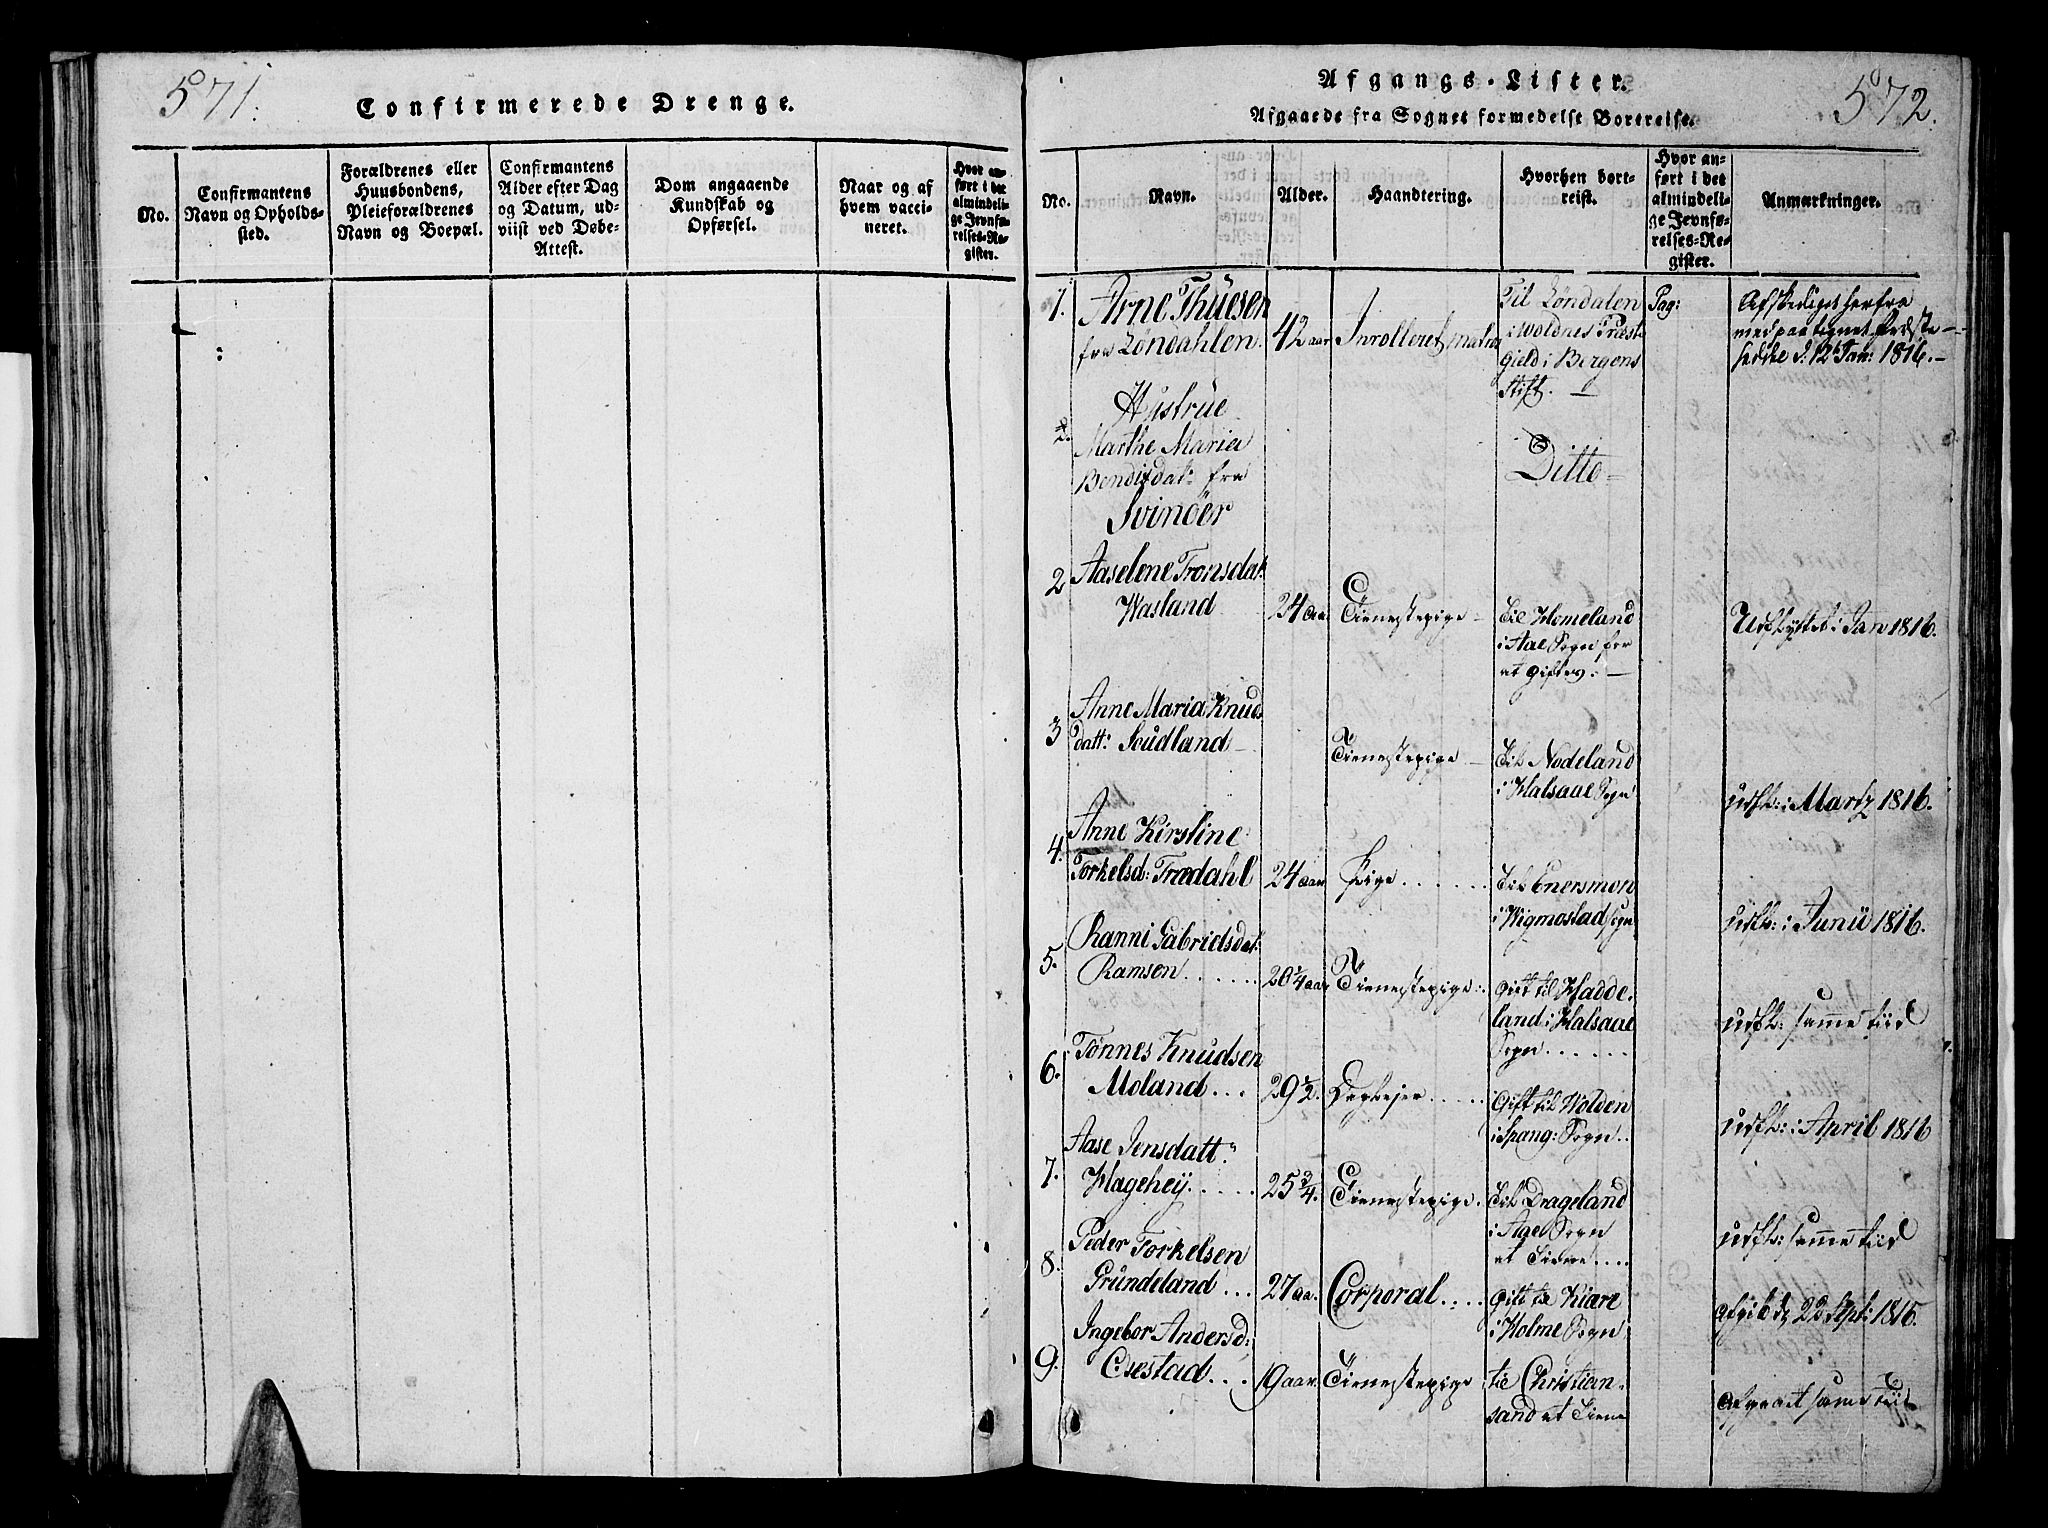 571.
Confirmerede Drenge.
No.
Confirmantens
Navn og Opholds-
sted.
Forældrenes eller
Huusbondens,
Pleieforældrenes
Navn og Boepæl.
Confirmantens
Alder efter Dag
og Datum, ud-
viist ved Døbe-
Attest.
Dom angaaende
Kundskab og
Opførsel.
Naar og af
hvem vacci-
neret.
Hvor an-
ført i det
almindeli-
ge Jevnfø-
relses-Re-
gister.
Afgangs-Lister.
572.
Afgaaede fra Sognet formedelst Bortreise.
No.
Navn.
Alder.
Haandtering.
Hvorhen bort-
reist.
Hvor an-
ført i det
almindeli-
ge Jevnfø-
relses-Re-
gister.
Anmærkninger.
1.
Arne Thuesen
fra Løndahlen.
42 aar
Inrolleret matros
Til Løndalen
i Woldnes Præste
Gield i Bergens
Stift. —
Pag:
Afskediget herfra
med paategnet
d. 12 Jan: 1816. —
2.
Hustrue
Marthe Maria
Bendixdat: fra
Svinöer
Ditto —
2
Aaselene Tronsdat:
Wasland
24 aar
Tienestepige —
til Homeland
i Aae Sogn for
at giftes: —
Udflyttet i Jan 1816.
3
Anne Maria Knuds
datt: Soudland —
Tienestepige —
til Nodeland
i Halsaae Sogn
udfl: i Martz 1816.
4.
Anne Kirstine
Torkelsd: Trædahl
24 aar
Pige . . . . . .
til Enersmon
i Wigmostad Sogn
udfl: i Junii 1816.
5.
Ranni Gabrielsdat:
Ramsen . . . . . .
20 1/4 aar
Tienestepige :
Gift til Hadde-
land i Halsaae
Sogn . . . . . .
udfl: samme tiid
6.
Tønnes Knudsen
Moland . . .
29 1/2.
Gift til Wolden
i Spang: Sogn . .
udfl: i April 1816
7.
Aase Jensdatt:
Hagehey . . . . .
25 3/4.
Tienestepige .
til Drageland
i Aae Sogn
at tiene . . . .
udfl: samme tiid
8.
Peder Torkelsen
Grundeland . . .
27 aa.
Corporal . . . .
Gift til Kiare
i Holme Sogn
afgik d. 22 Sept: 1816.
9.
Ingebor Andersd:
. . .
19 aar.
Tienestepige
til Christian-
sand at tiene
afgaaet samme tiid